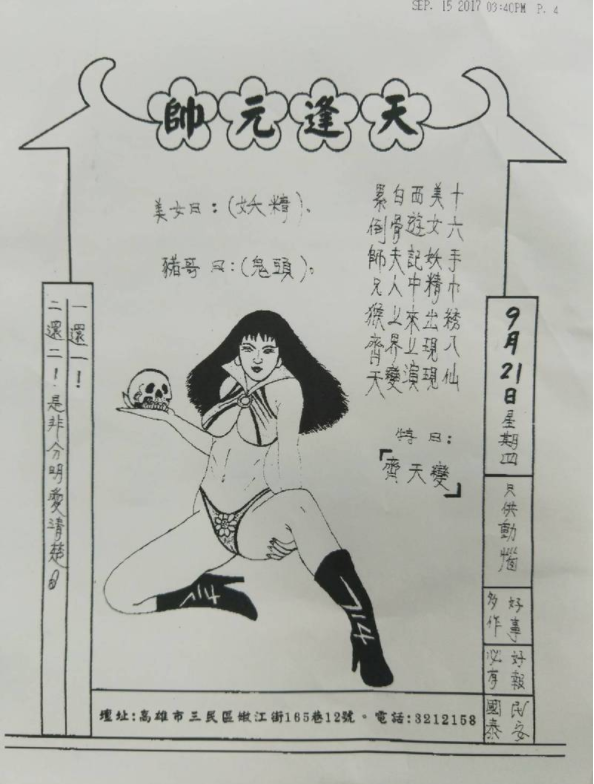 SEP. 15 2017 03:40PM P. 4
天逢元帥
十六手巾綉八仙
美女妖精出現現
西遊記中來上演
白骨夫人界變
累倒師兄猴齊天
美女曰：(妖精)。
豬哥曰：(鬼頭)。
特曰：
「齊天變」
9月21日星期四
只供動惱
好事多作
好報必有
民安國泰
一還一！
二還二！是非分明愛清楚
714
714
壇址:高雄市三民區嫩江街165巷12號。電話:3212158